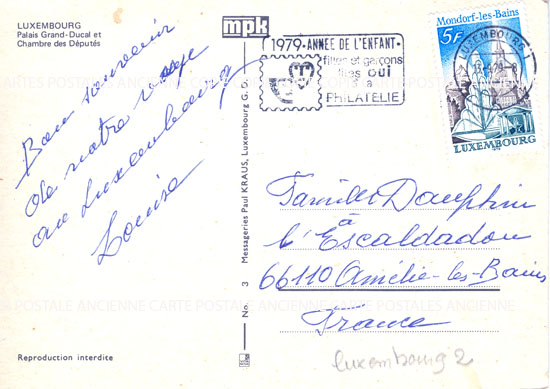 LUXEMBOURG
Palais Grand-Ducal et
Chambre des Députés
Bon souvenir
de notre voyage
au Luxembourg
Louise
mpk
Messageries Paul KRAUS, Luxembourg G. D.
No. 3
Reproduction interdite
1979 • ANNEE DE L'ENFANT •
filles et garçons
oui
à
PHILATELIE
LUXEMBOURG 1
Mondorf-les-Bains
5F
LUXEMBOURG
Famille Dauphin
à
l'Escaldadou
66110 Amélie-les-Bains
France
Luxembourg 2
CARTE POSTALE ANCIENNE